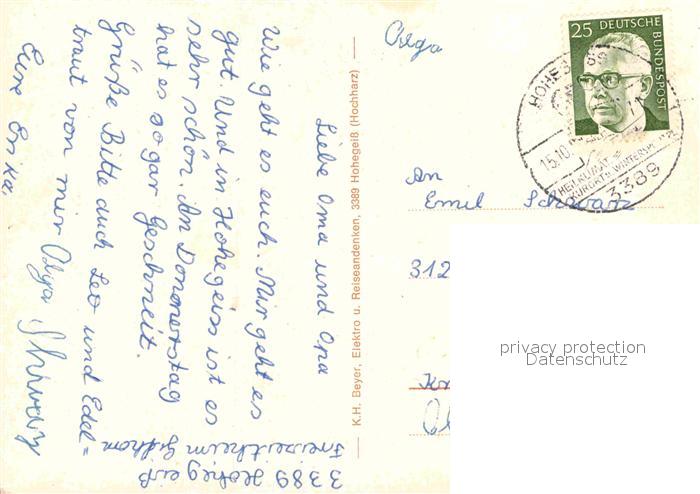 Liebe Oma und Opa
Wie geht es euch. Mir geht es
gut. Und in Hohegeiss ist es
sehr schön. An Donnerstag
hat es sogar geschneit.
Grüße Bitte auch Leo und Edel=
traut von mir Olga
Eure Enkel
3389 Hohegeiß
Freizeitheim Gifhorn
K.H. Beyer, Elektro u. Reiseandenken, 3389 Hohegeiß (Hochharz)
Olga
25 DEUTSCHE
BUNDESPOST
HOHEGEISS
15.10.
HEILKLIMAT.
KURORT u. WINTERSP
3389
An
Emil Schwarz
312
privacy protection
Datenschutz